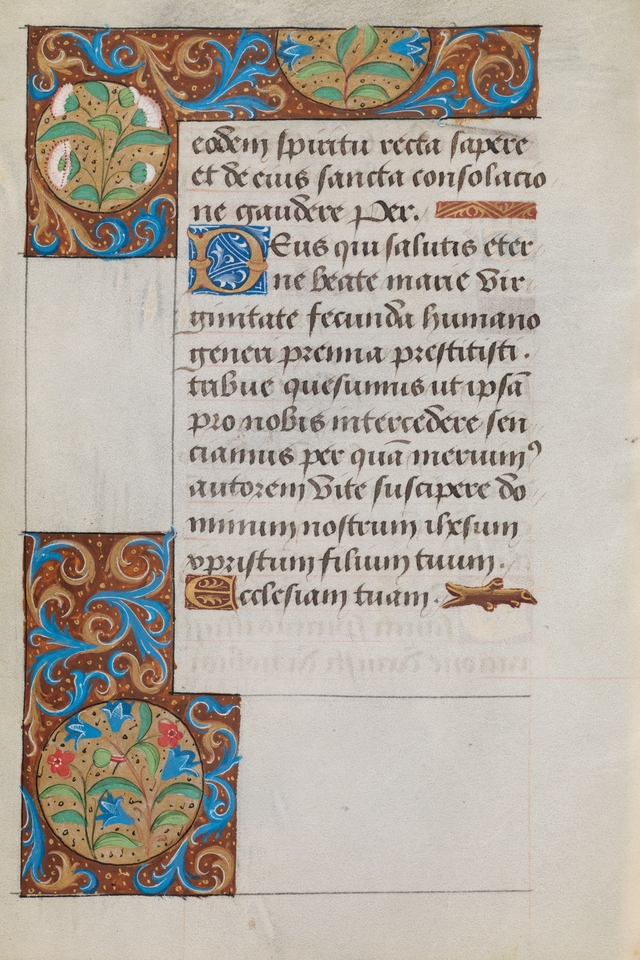 eodem spiritu recta sapere
et de eius sancta consolacio
ne gaudere Per.
DEus qui salutis eter
ne beate marie vir
ginitate fecunda humano
generi premia prestitisti.
tribue quesumus ut ipsā
pro nobis intercedere sen
ciamus per quā meruimꝰ
autorem vite suscipere do
minum nostrum ihesum
xpristum filium tuum.
Ecclesiam tuam.